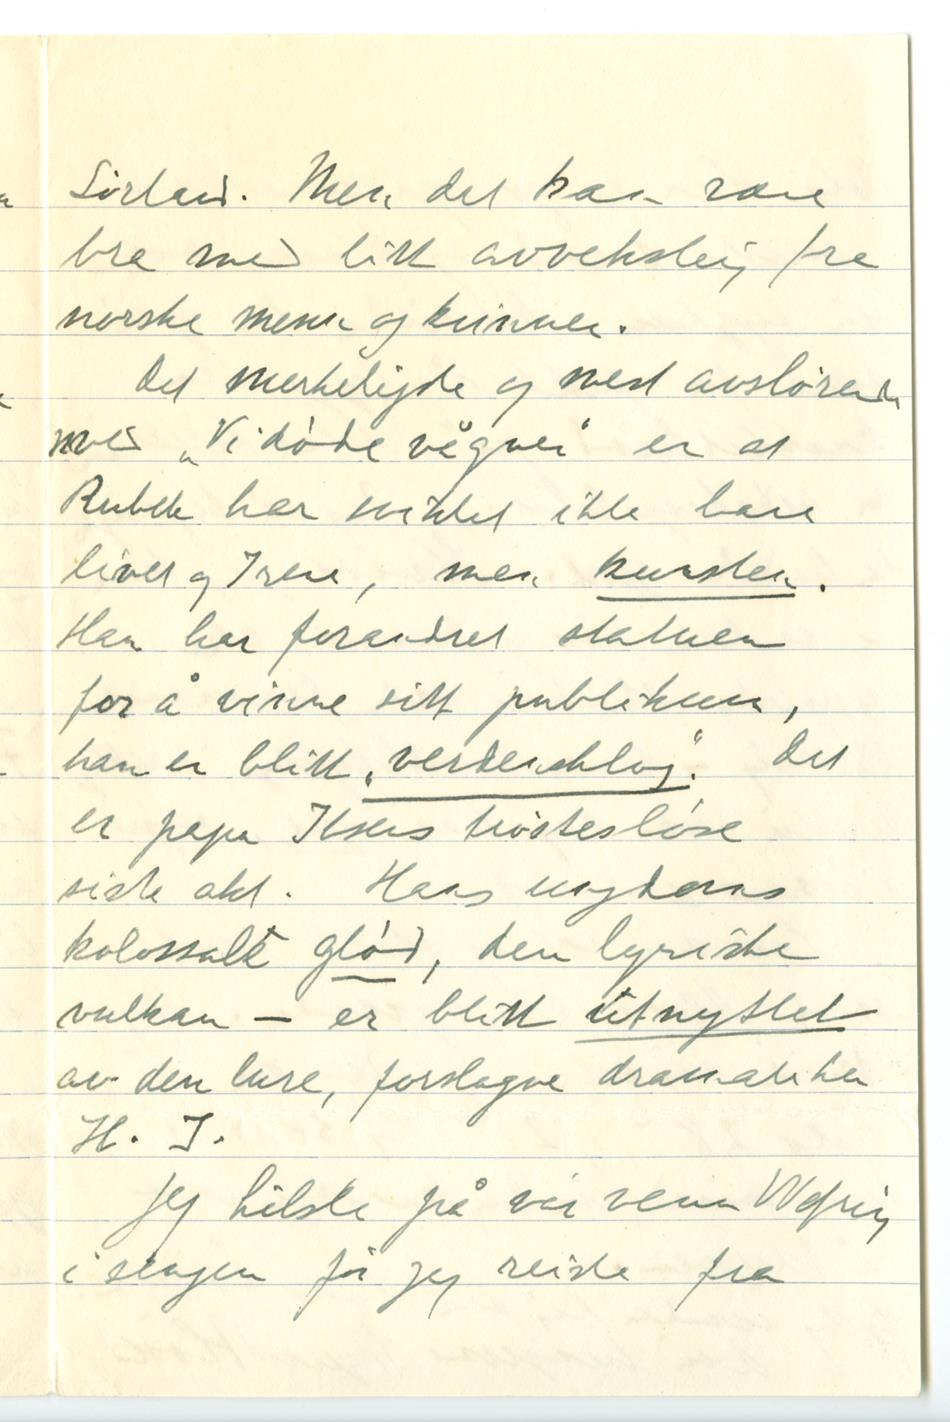 Sørland. Men det kan være
bra med litt avveksling fra
norske menn og kvinner.
Det merkeligste og mest avslørende
med „Vi døde vågner" er at
Rubek har sviktet ikke bare
livet og Irene, men kunsten.
Han har forandret statuen
for å vinne sitt publikum,
han er blitt „verdensklog". Det
er papa Ibsens trøstesløse
siste akt. Hans ungdoms
kolossale glød, den lyriske
vulkan — er blitt utnyttet
av den lure, forslagne dramatiker
H. I.
Jeg hilste på vår venn
i sengen før jeg reiste fra